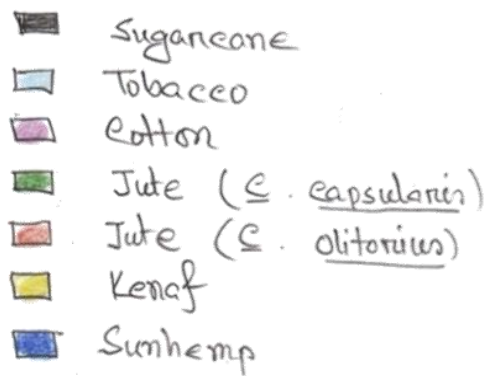 Sugarcane
Tobacco
Cotton
Jute (C. capsularis)
Jute (C. olitorius)
Kenaf
Sunhemp